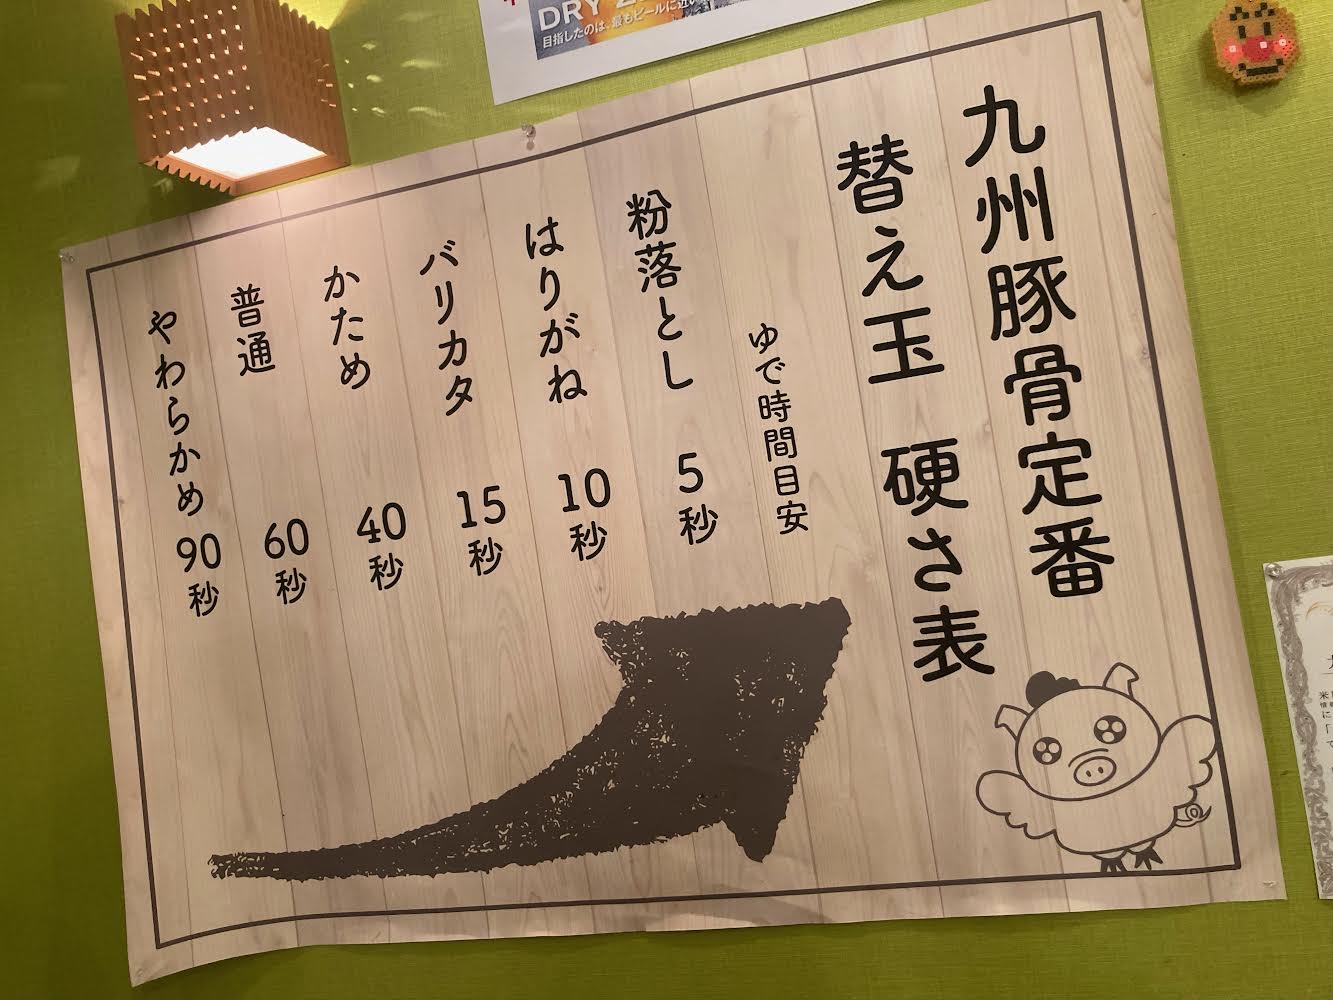 九州豚骨定番
替え玉 硬さ表
ゆで時間目安
粉落とし 5秒
はりがね 10秒
バリカタ 15秒
かため 40秒
普通 60秒
やわらかめ 90秒
DRY
目指したのは、最もビールに近い